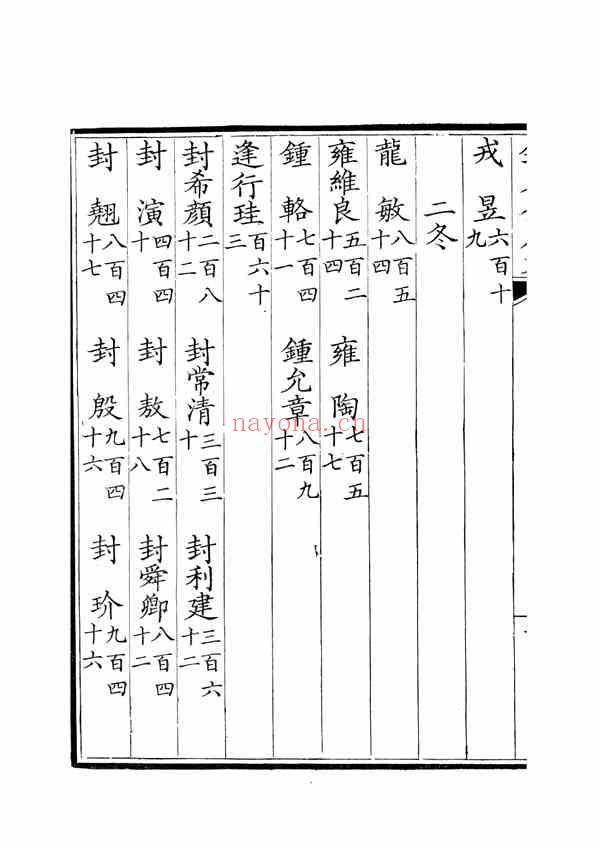 戎昱六百十九
二冬
龍敏八百五十四
雍維良五百二十四 雍陶七百五十七
鍾輅七百四十一 鍾允章八百九十二
逢行珪百六十三
封希顏二百八十二 封常清三百三十 封利建三百六十二
封演四百四十 封敖七百二十八 封舜卿八百四十二
封翹八百四十七 封殷九百四十六 封玠九百四十六
nayona.cn